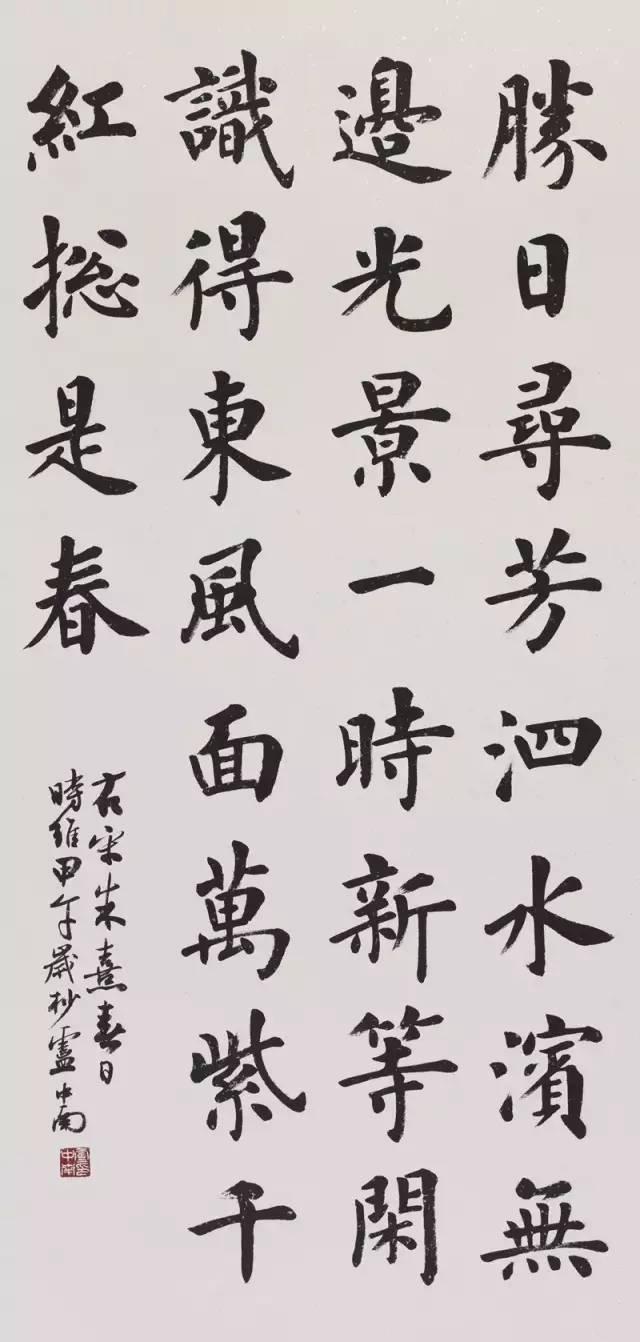 勝日尋芳泗水濱無
邊光景一時新等閑
識得東風面萬紫千
紅捴是春
右宋朱熹春日
時維甲午歲杪盧中南